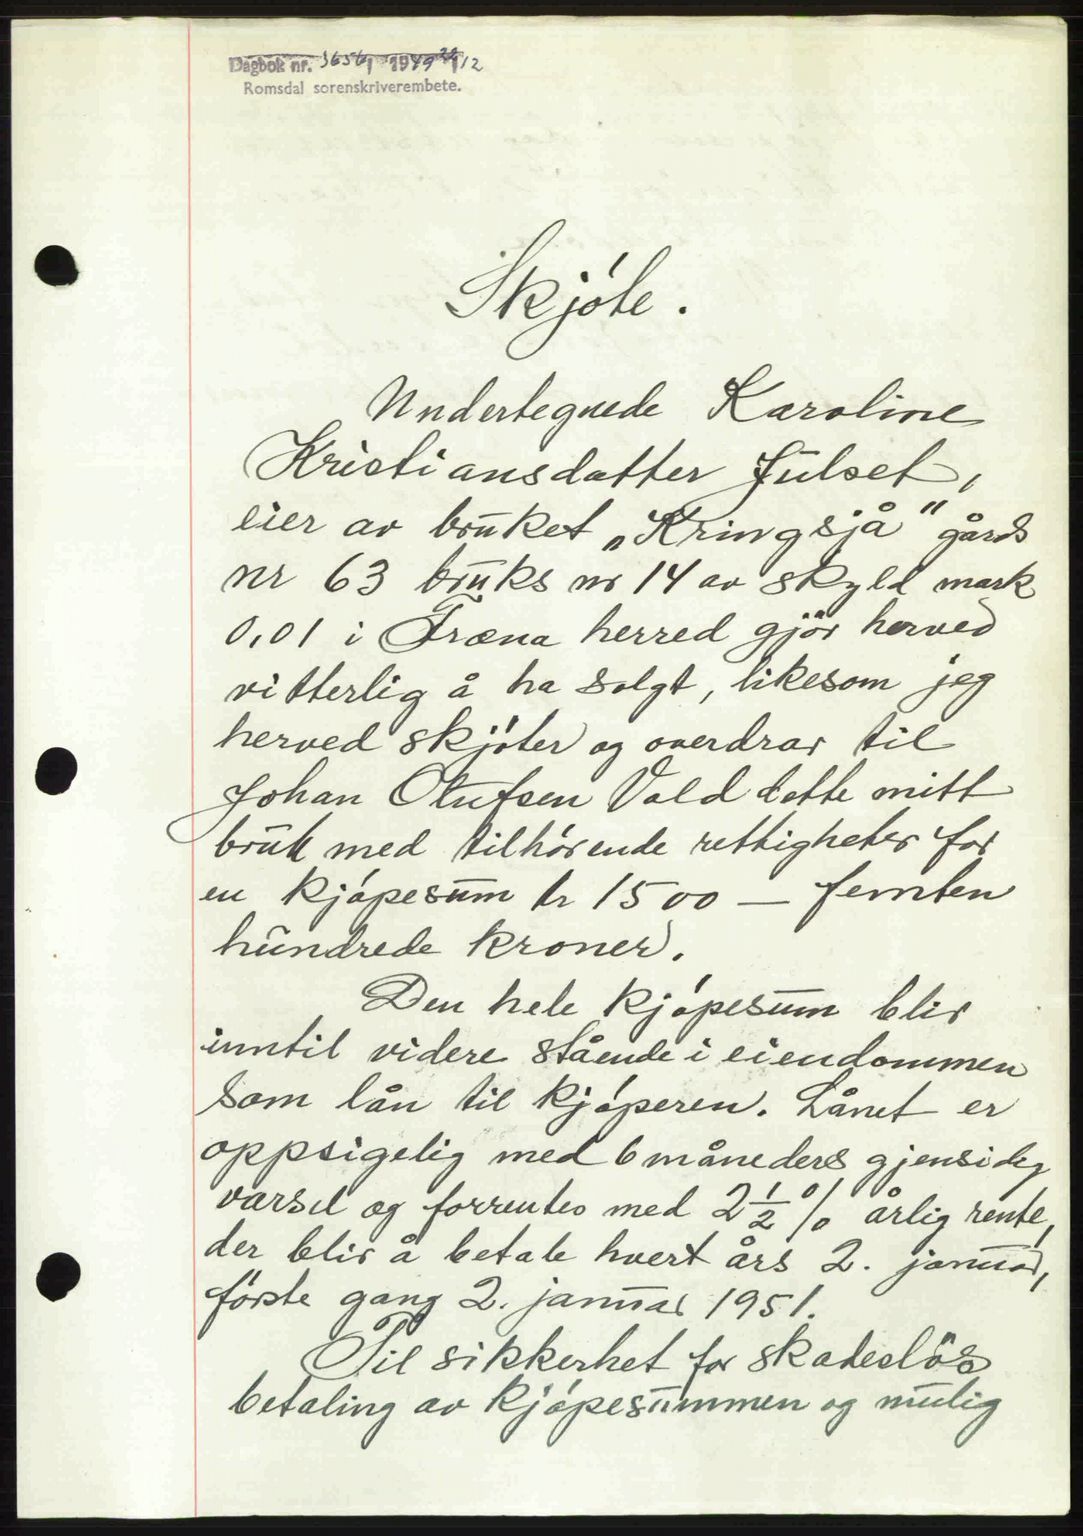 Dagbok nr. 3656 / 1949 28/12
Romsdal sorenskriverembete.
Skjöte.
Undertegnede Karoline
Kristiansdatter Julset,
eier av bruket „Kringsjå" gårds
nr 63 bruks nr 14 av skyld mark
0,01 i Fræna herred gjör herved
vitterlig å ha solgt, likesom jeg
herved skjöter og overdrar til
Johan Olufsen Vold dette mitt
bruk med tilhörende rettigheter for
en kjöpesum kr 1500 — femten
hundrede kroner.
Den hele kjöpesum blir
inntil videre stående i eiendommen
som lån til kjöperen. Lånet er
oppsigelig med 6 måneders gjensidig
varsel og forrentes med 2 1/2 % årlig rente,
der blir å betale hvert års 2. januar,
förste gang 2. januar 1951.
Til sikkerhet for skadeslös
betaling av kjöpesummen og mulig